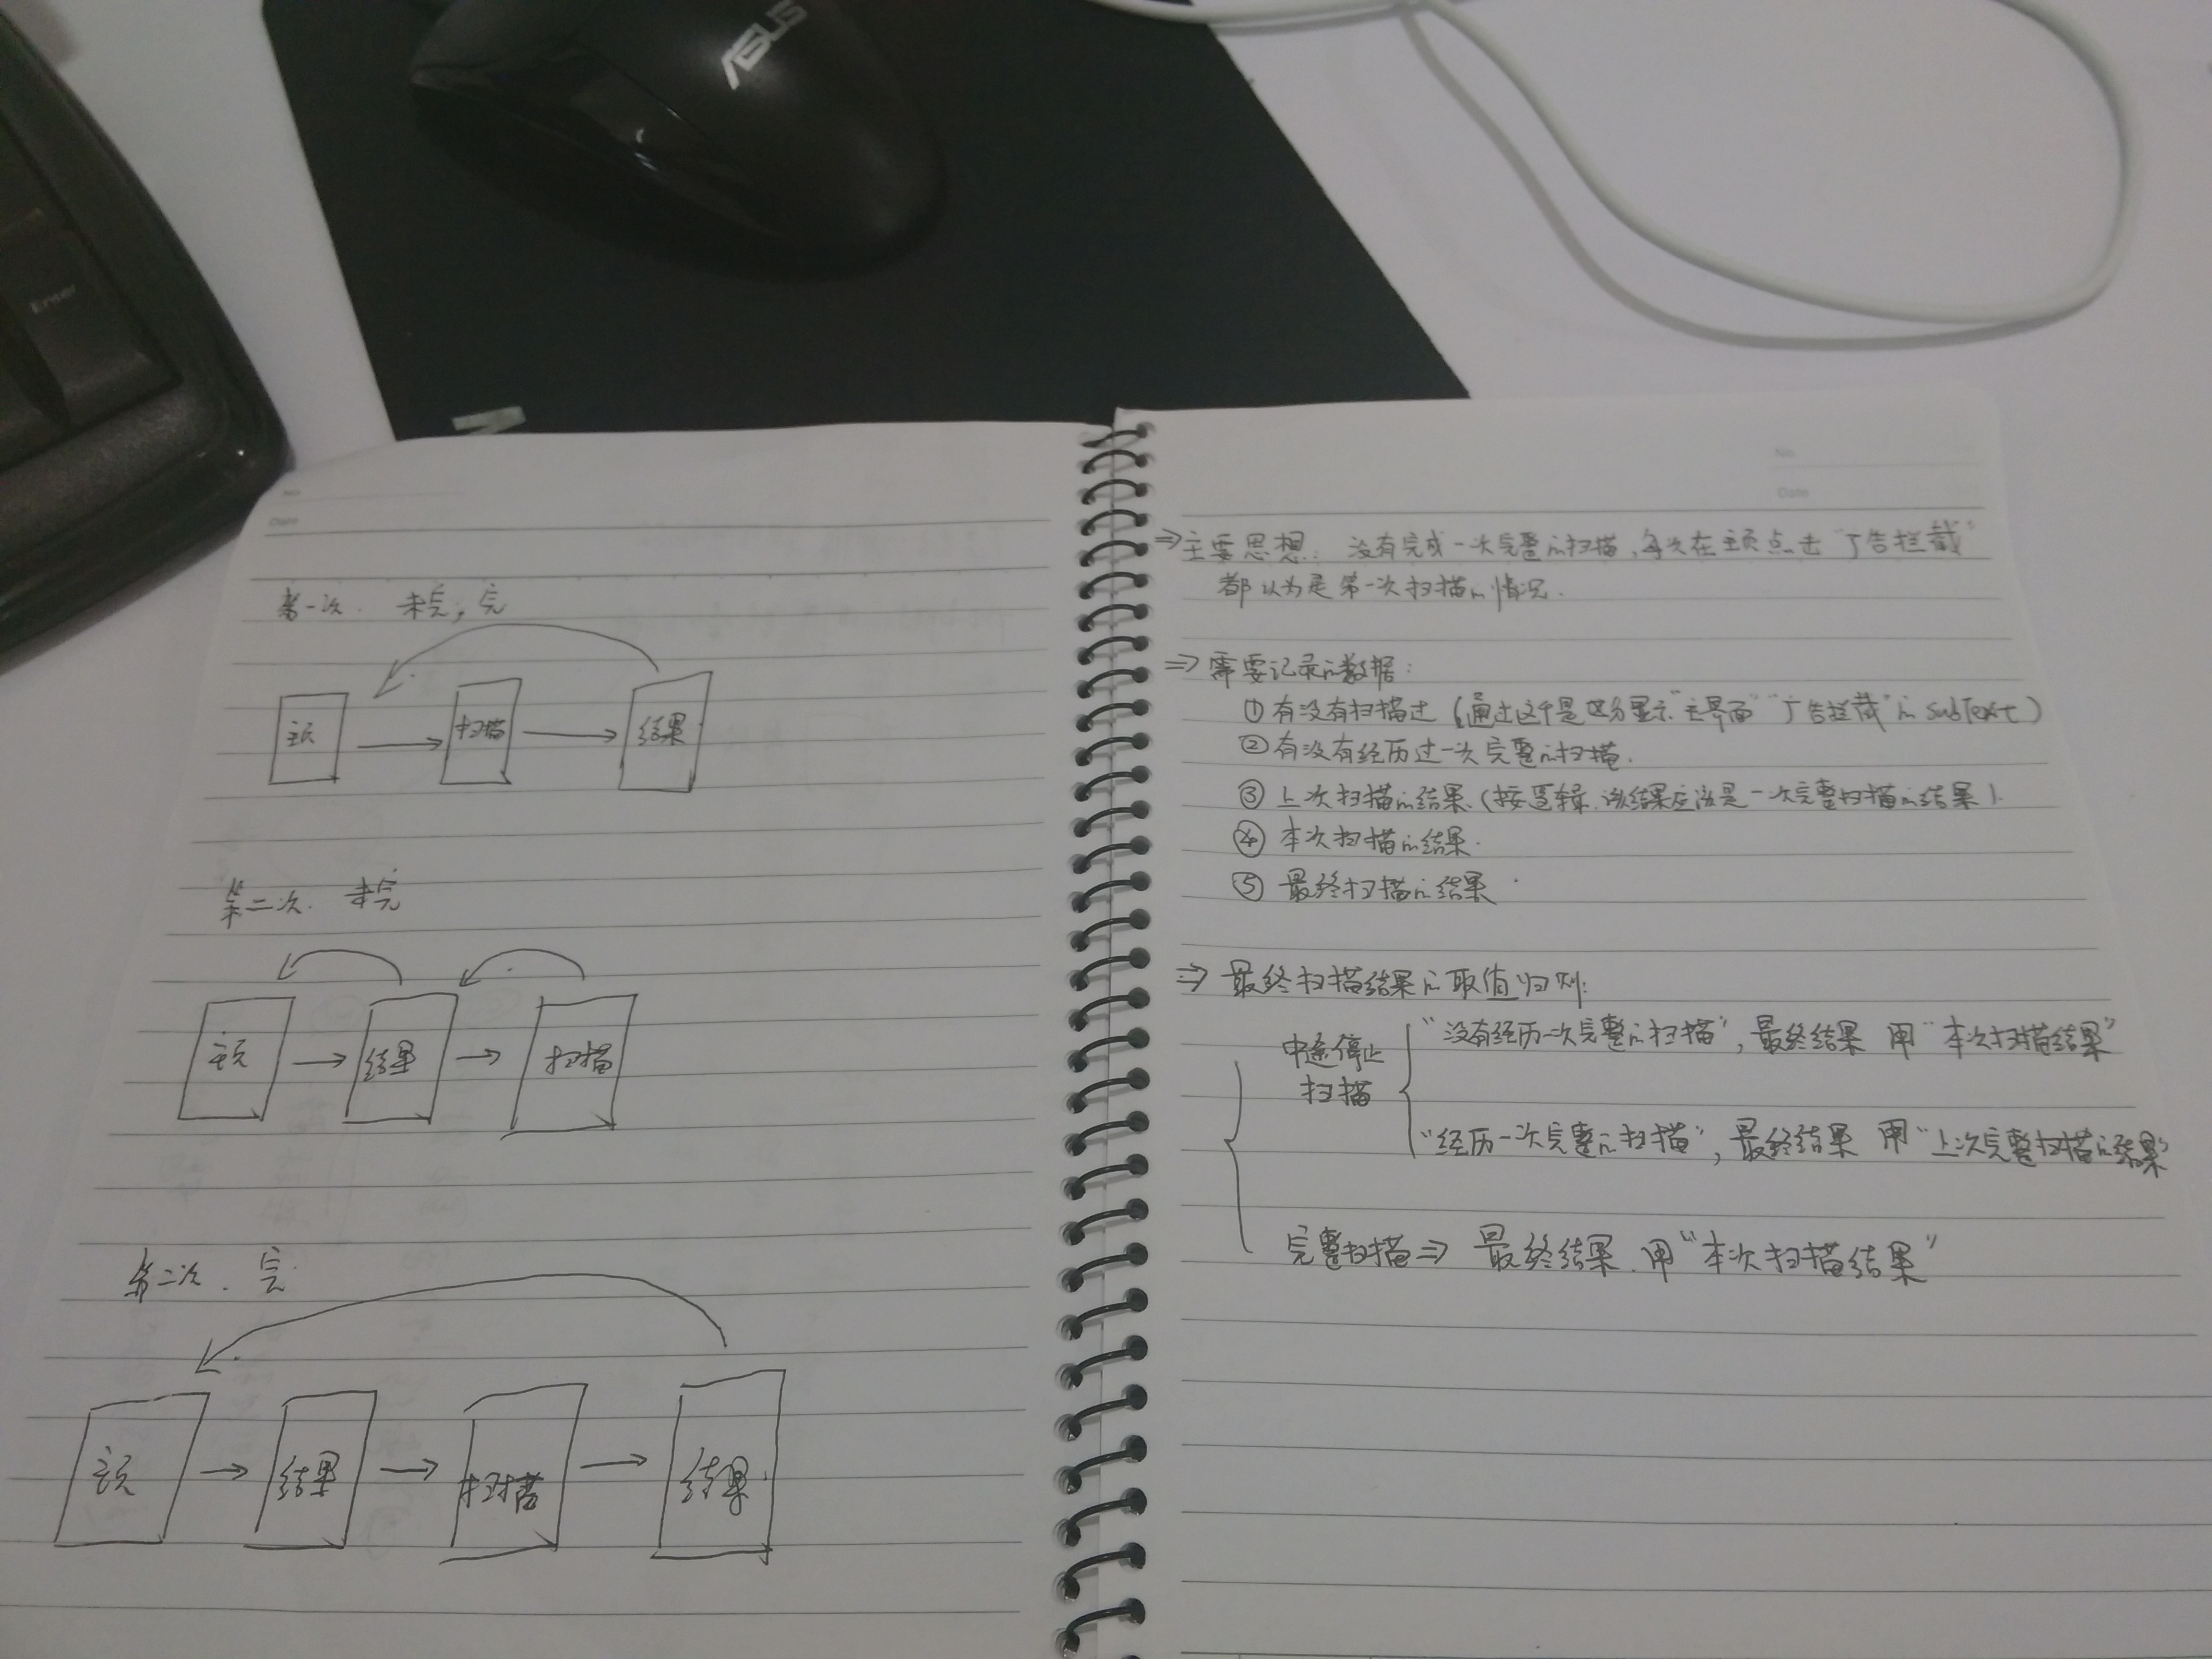 ASUS
Enter
No.
Date
第一次. 未完, 完
主页
扫描
结果
第二次. 未完
主页
结果
扫描
第二次. 完
主页
结果
扫描
结果
No.
Date
⇒主要思想: 没有完成一次完整的扫描, 每次在主页点击"广告拦截"
都以为是第一次扫描的情况.
⇒需要记录的数据:
① 有没有扫描过 (通过这个是区分显示"主界面""广告拦截"的subText)
② 有没有经历过一次完整的扫描.
③ 上次扫描的结果. (按逻辑, 该结果应该是一次完整扫描的结果).
④ 本次扫描的结果.
⑤ 最终扫描的结果.
⇒ 最终扫描结果的取值归则:
中途停止
扫描
"没有经历一次完整的扫描", 最终结果 用"本次扫描结果"
"经历一次完整的扫描", 最终结果 用"上次完整扫描的结果"
完整扫描⇒ 最终结果.用"本次扫描结果"